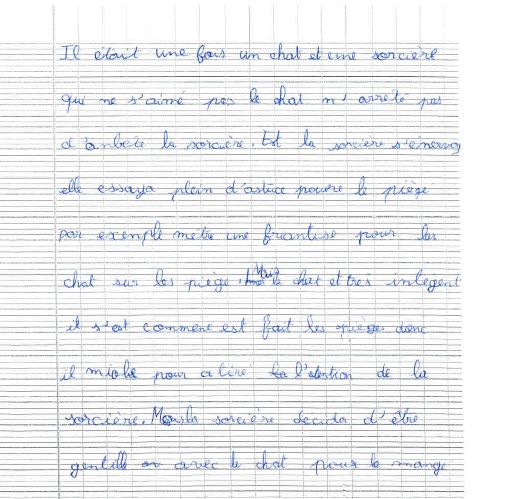 Il étoit une fois un chat et une sorcière
qui ne s'aimé pas le chat n'arreté pas
d'anbete la sorcière. Est la sorciere s'énerva
elle essaya plein d'astuce pour le piège
par exenple metre une friantise pour les
chat sur les piège. Mais le chat et très inteligent
il s'est comment est fait les pièges donc
il miole pour atire l'atention de la
sorcière. Mais la sorcière decida d'être
gentille avec le chat pour le mange